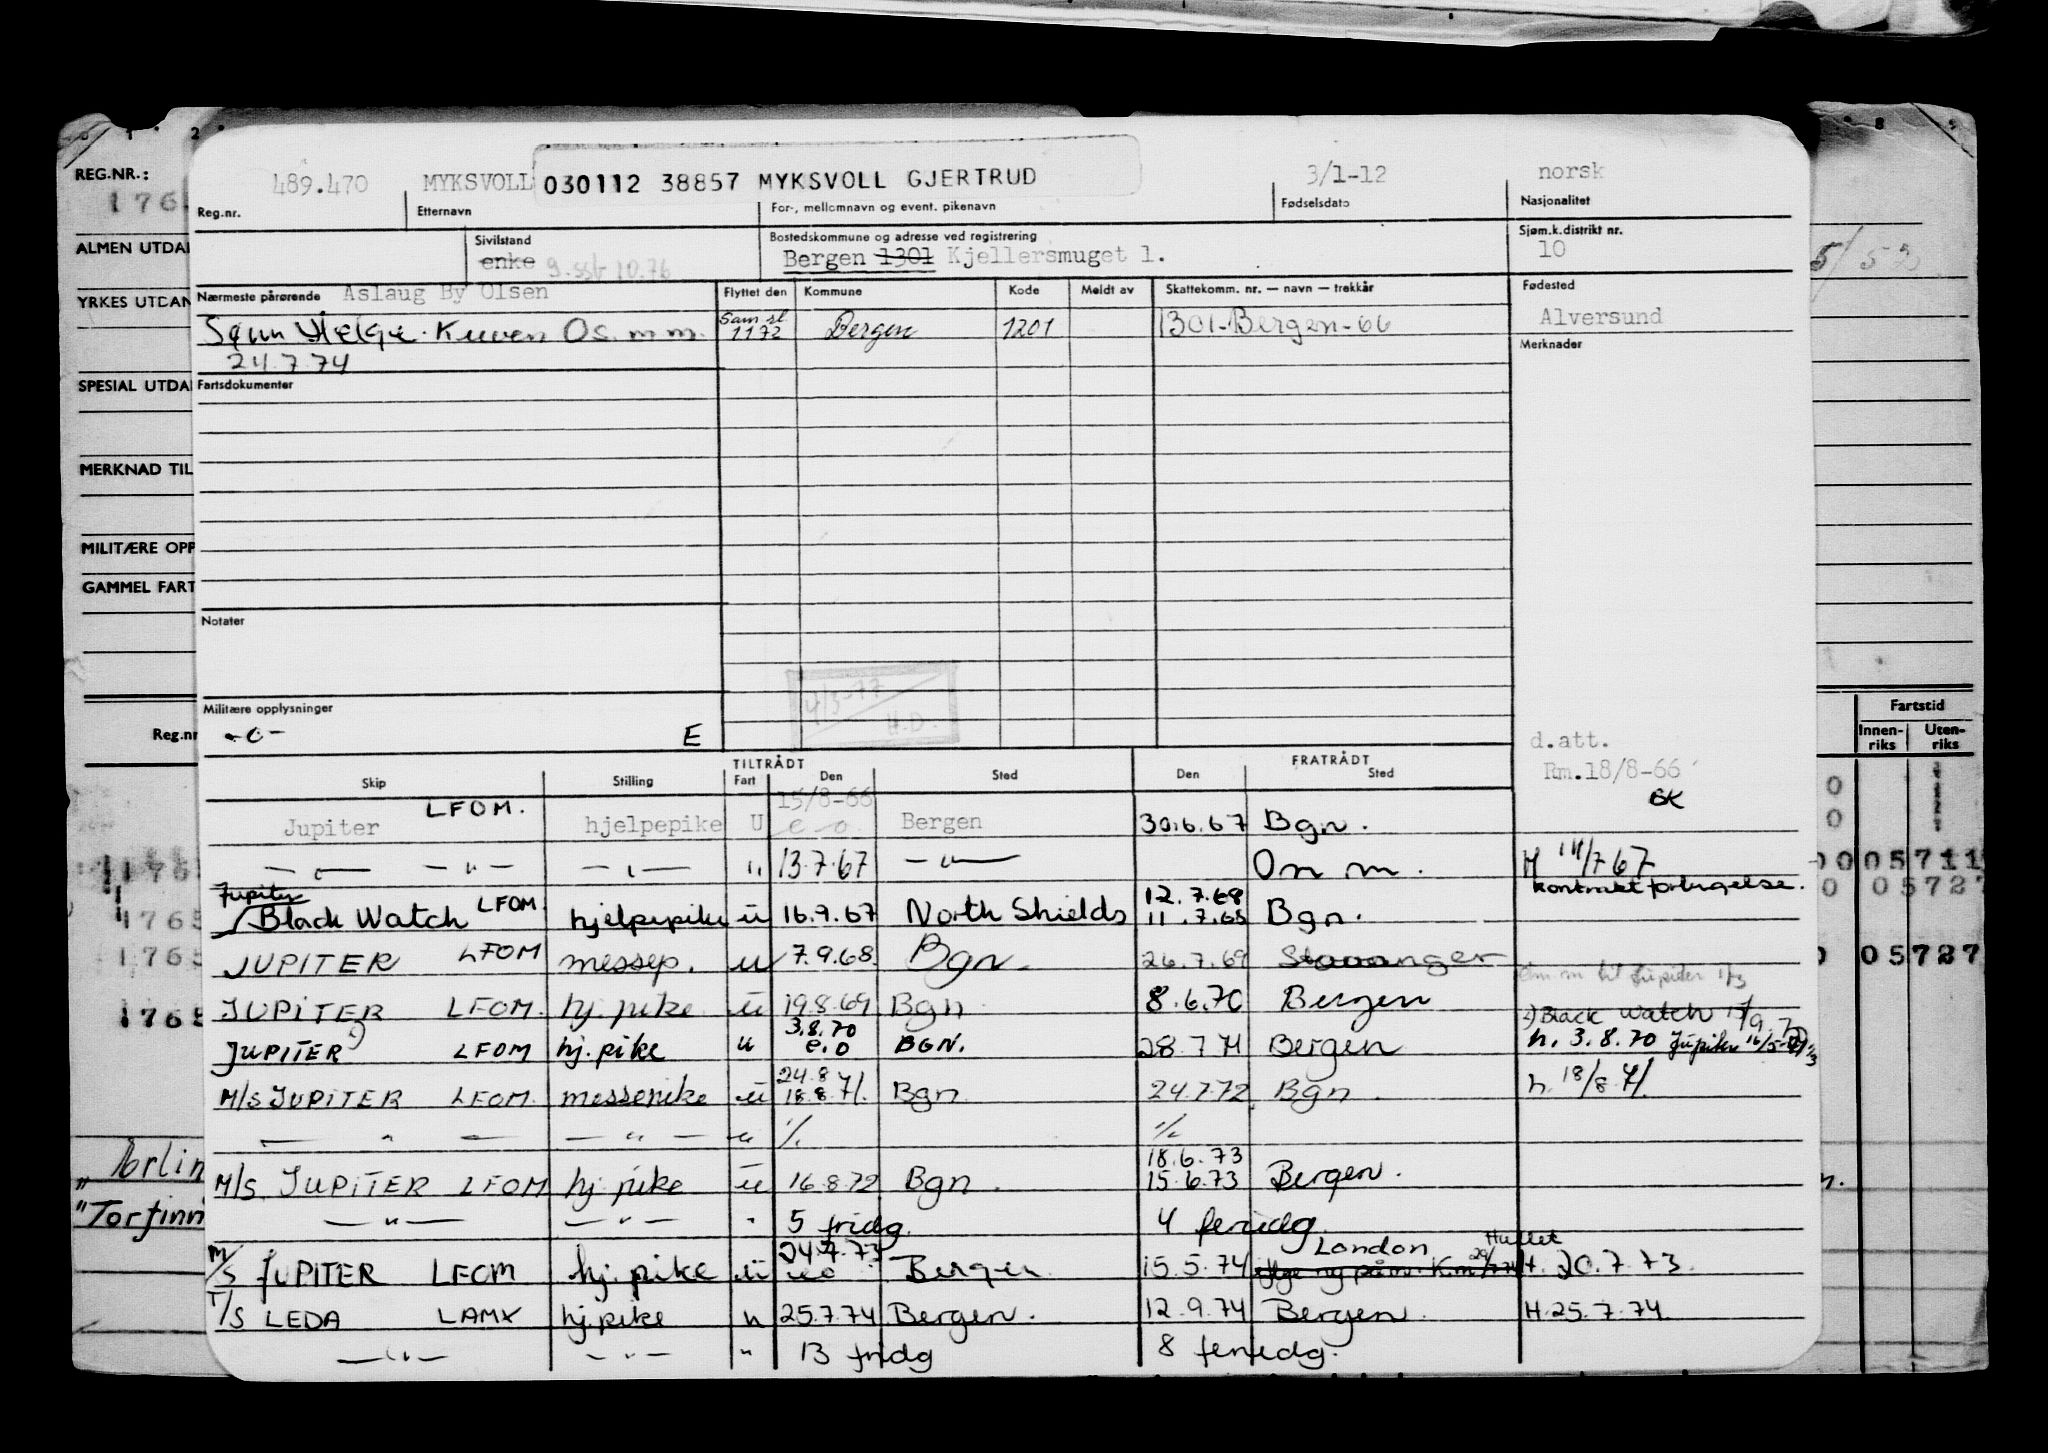 REG.NR.:
ALMEN UTDA
YRKES UTDAN
SPESIAL UTDA
MERKNAD TIL
MILITÆRE OPP
GAMMEL FART
Reg.nr
489.470 MYKSVOLL 030112 38857 MYKSVOLL GJERTRUD 3/1-12 norsk
Reg.nr. Etternavn For-, mellomnavn og event. pikenavn Fødselsdato Nasjonalitet
Sivilstand Bostedskommune og adresse ved registrering Sjøm.k.distrikt nr.
enke g. ssb 10.76 Bergen 1301 Kjellersmuget 1. 10
Nærmeste pårørende Aslaug By Olsen Flyttet den Kommune Kode Meldt av Skattekomm. nr. — navn — trekkår Fødested
Sønn Helge. Kuven Os. m m. Sam.sl. 1172 Bergen 1201 1301-Bergen-66 Alversund
24.7.74 Merknader
Fartsdokumenter
Notater
4/3-77
H.D.
Militære opplysninger
-o- E
d.att.
Rm.18/8-66
BK
TILTRÅDT FRATRÅDT
Skip Stilling Fart Den Sted Den Sted
Jupiter LFOM. hjelpepike U 15/8-66 e.o. Bergen 30.6.67 Bgn.
— " — — " — — " — " 13.7.67 — " — Om m. H 14/7 67
kontrakt forlengelse.
Jupiter
Black Watch LFOM hjelpepike u 16.9.67 North Shields 12.7.68 11.7.68 Bgn.
JUPITER LFOM messep. u 7.9.68. Bgn. 26.7.69 Stavanger
Om m til Jupiter 1/3
JUPITER LFOM. hj. pike u 19.8.69 Bgn 8.6.70 Bergen
1) Black Watch
JUPITER 1) LFOM hj. pike u 3.8.70 e.o BGN. 28.7.71 Bergen h. 3.8.70 Jupiter
M/S JUPITER LFOM. messepike u 24.8 18.8.71. Bgn 24.7.72 Bgn. h. 18/8.71.
— " — — " — u % %
M/S JUPITER LFOM hj. pike u 16.8.72 Bgn. 18.6.73 15.6.73 Bergen.
— " — — " — " 5 fridg. 4 feridg.
M/S JUPITER LFOM hj. pike u 24.7.73 e.o Bergen. 15.5.74 London H. 20.7.73.
T/S LEDA LAMX hj.pike u 25.7.74 Bergen. 12.9.74 Bergen. H. 25.7.74.
— " — — " — " 13 fridg 8 feriedg.
Fartstid
Innen-riks Uten-riks
05711
05727
05727
"Torfinn